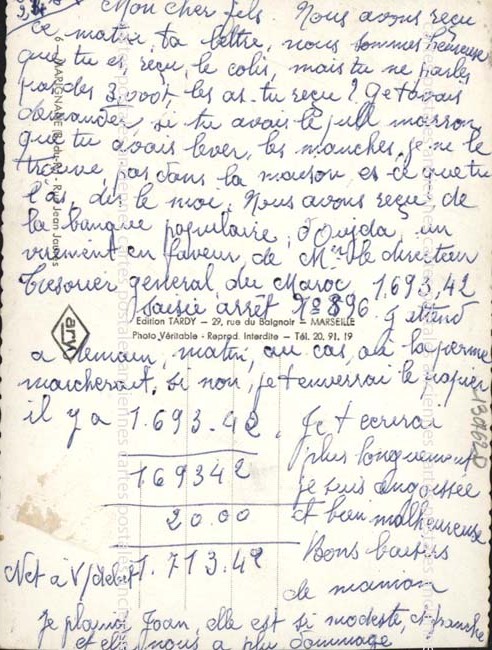 Mon cher fils. Nous avons reçu
ce matin, ta lettre, nous sommes heureuse
que tu es, reçu, le colis, mais tu ne parles
pas des 3.000f, les as-tu reçu ? Je t'avais
demander, si tu avais le pull marron
que tu avais lever, les manches, je ne le
trouve, pas dans la maison, es-ce que tu
l'as, dis le moi. Nous avons reçu, de
la banque populaire, d'Oujda, un
virement en faveur, de Mr le directeur
Tresorier general, du Maroc, 1.693,42
saisie arrêt N° 896. J'attend
a demain, matin, au cas, où la
marcherait, si non, je t'enverrai le papier
il y a 1.693.42. Je t'ecrirai
plus longuement
169342
je suis angoissée
20.00
et bien malheureuse
Net à V/débit 1.713.42
Bons baisers
de maman
Je plains Joan, elle est si modeste, et franche
et elle nous a plu dommage
6 - MARIGNANE (B.-du-R.) - Rue Jean Jaurès
ary
Edition TARDY — 29, rue du Baignoir — MARSEILLE
Photo Véritable - Reprod. Interdite — Tél. 20. 91. 19